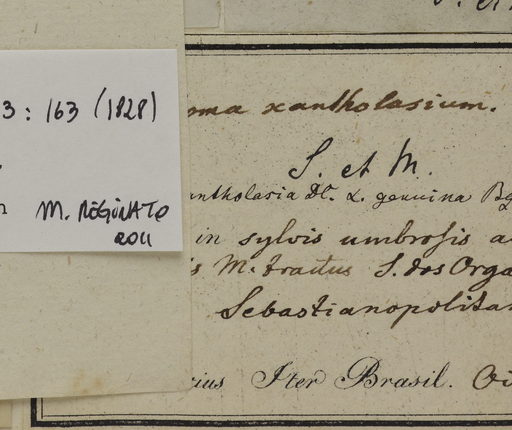 3: 163 (1828)
M. REGINATO
2011
oma xantholasium.
S. et M.
antholasia DC. α. genuina
in sylvis umbrosis
M. tractus S. dos Orga
Sebastianopolitan
tius Iter Brasil.